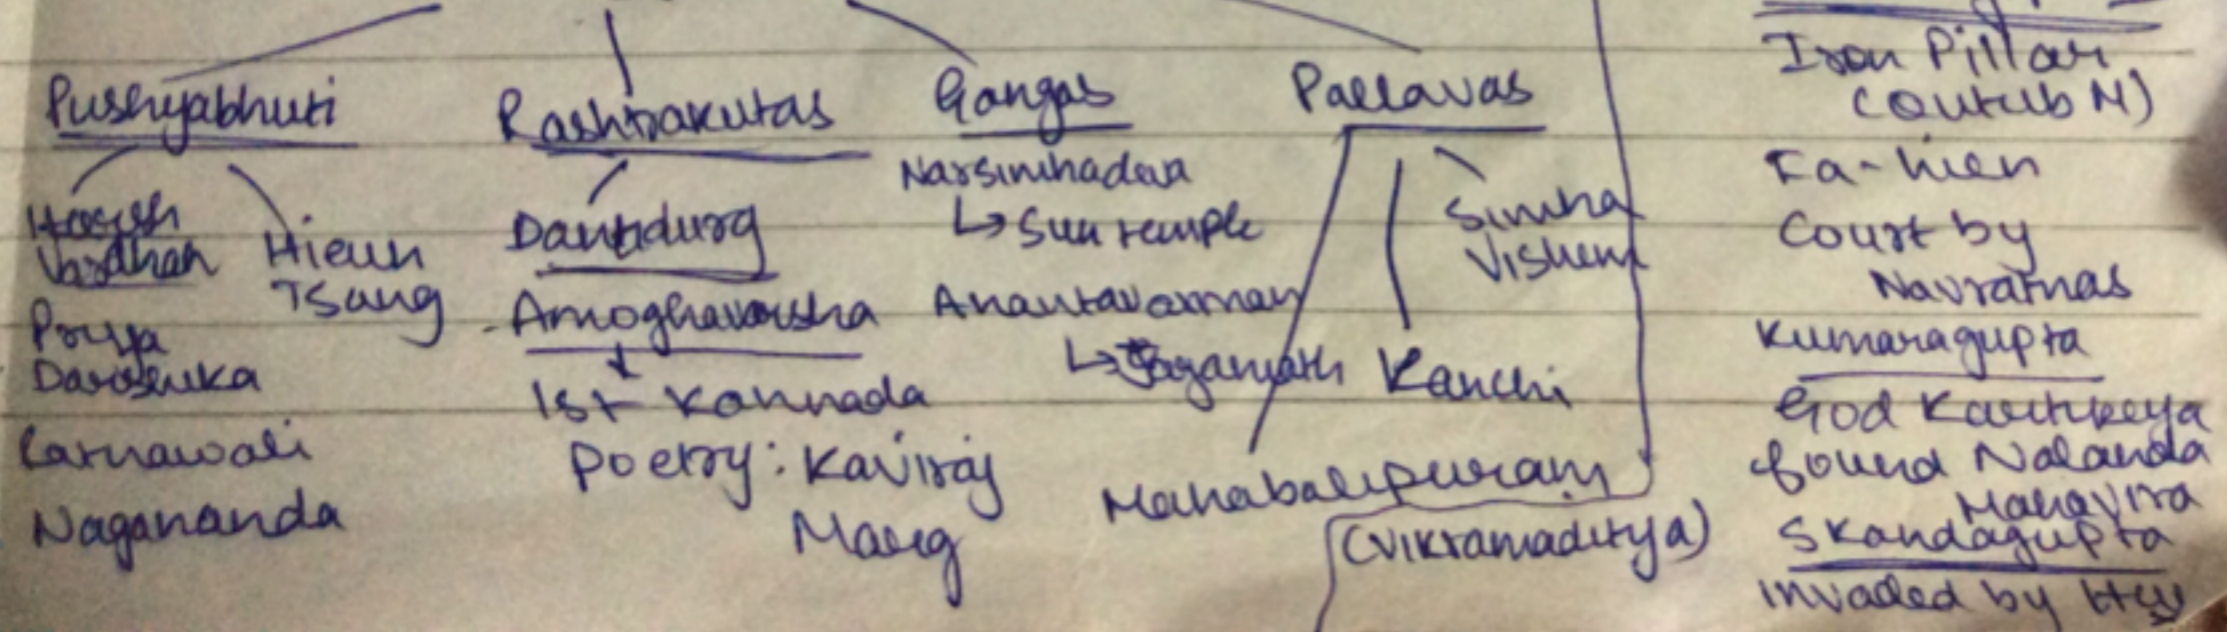 Pushyabhuti
Harsh
Vardhan
Hieun
Tsang
Priya
Darshika
Ratnawali
Nagananda
Rashtrakutas
Dantidurg
Amoghavarsha
1st Kannada
Poetry: Kaviraj
Marg
Gangas
Narsimhadeva
↳ Sun temple
Anantavarman
↳ Jaganath
Pallavas
Simha
Vishnu
Kanchi
Mahabalipuram
(Vikramaditya)
Iron Pillar
(Qutub M)
Fa-hien
Court by
Navratnas
Kumaragupta
God Kartikeya
found Nalanda
Mahavira
Skandagupta
invaded by